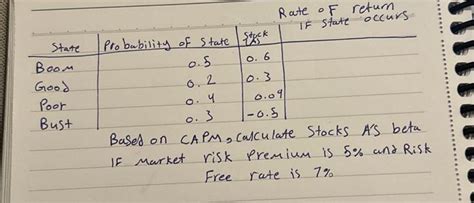 Rate of return
IF State occurs
State Probability of State Stock (A)
Boom 0.5 0.6
Good 0.2 0.3
Poor 0.4 0.04
Bust 0.3 -0.5
Based on CAPM, Calculate Stocks A's beta
IF Market risk Premium is 5% and Risk
Free rate is 7%